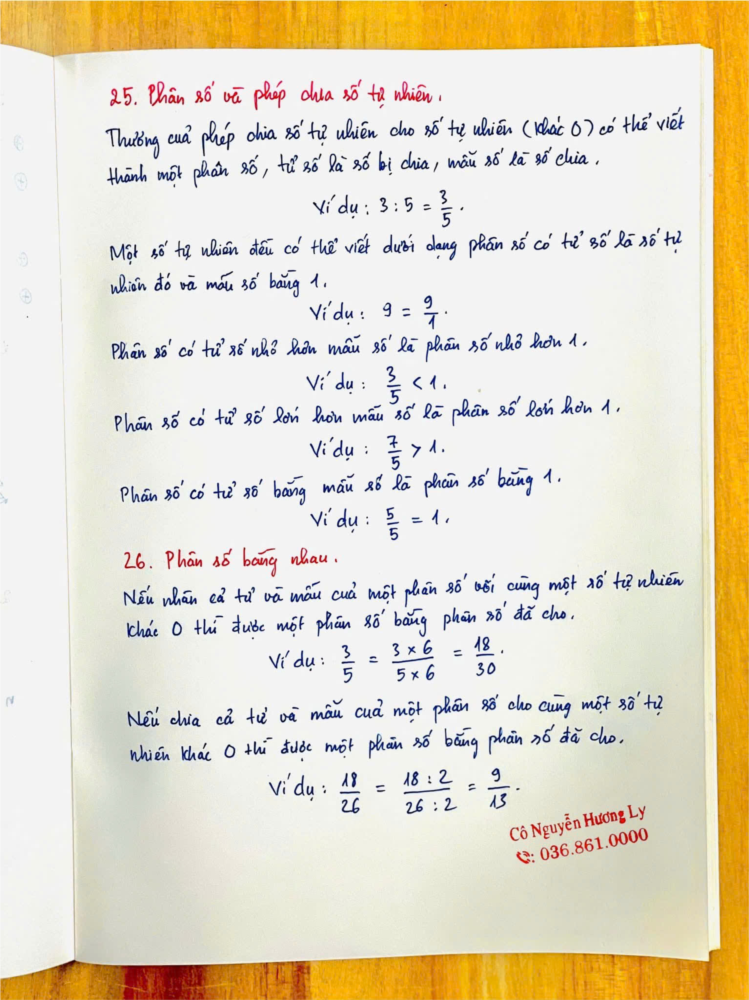 25. Phân số và phép chia số tự nhiên.
Thương của phép chia số tự nhiên cho số tự nhiên (khác 0) có thể viết
thành một phân số, tử số là số bị chia, mẫu số là số chia.
Ví dụ: 3 : 5 = 3/5.
Một số tự nhiên đều có thể viết dưới dạng phân số có tử số là số tự
nhiên đó và mẫu số bằng 1.
Ví dụ: 9 = 9/1.
Phân số có tử số nhỏ hơn mẫu số là phân số nhỏ hơn 1.
Ví dụ: 3/5 < 1.
Phân số có tử số lớn hơn mẫu số là phân số lớn hơn 1.
Ví dụ: 7/5 > 1.
Phân số có tử số bằng mẫu số là phân số bằng 1.
Ví dụ: 5/5 = 1.
26. Phân số bằng nhau.
Nếu nhân cả tử và mẫu của một phân số với cùng một số tự nhiên
khác 0 thì được một phân số bằng phân số đã cho.
Ví dụ: 3/5 = 3 x 6/5 x 6 = 18/30.
Nếu chia cả tử và mẫu của một phân số cho cùng một số tự
nhiên khác 0 thì được một phân số bằng phân số đã cho.
Ví dụ: 18/26 = 18 : 2/26 : 2 = 9/13.
Cô Nguyễn Hương Ly
☎: 036.861.0000